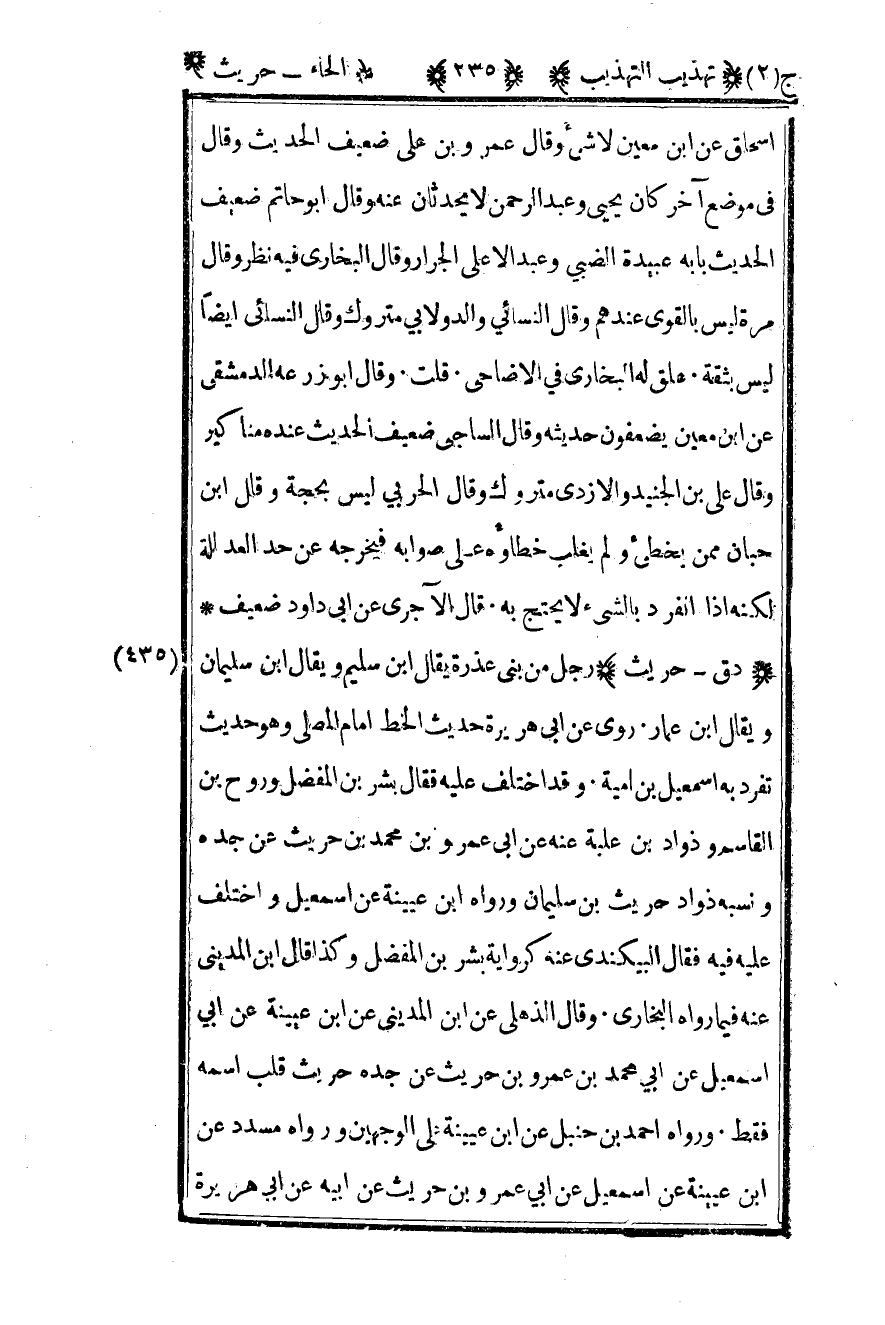 ج(٢) ﴿ تهذيب التهذيب ﴾ ﴿ ٢٣٥ ﴾ ﴿ الحاء - حريث ﴾
اسحاق عن ابن معين لاشئ وقال عمرو بن على ضعيف الحديث وقال
فى موضع آخر كان يحيى وعبدالرحمن لايحدثان عنه وقال ابوحاتم ضعيف
الحديث بابه عبيدة الضبي وعبدالاعلى الجرار وقال البخارى فيه نظر وقال
مرة ليس بالقوى عندهم وقال النسائي والدولابي متروك وقال النسائى ايضاً
ليس بثقة · علق له البخارى في الاضاحى · قلت · وقال ابوزرعه الدمشقى
عن ابن معين يضعفون حديثه وقال الساجى ضعيف الحديث عنده مناكير
وقال على بن الجنيد والازدى متروك وقال الحربي ليس بحجة وقال ابن
حبان ممن يخطئ ولم يغلب خطاؤه على صوابه فيخرجه عن حد العدالة
لكنه اذا انفرد بالشىء لايحتج به · قال الآجرى عن ابى داود ضعيف *
﴿ دق - حريث ﴾ رجل من بنى عذرة يقال ابن سليم ويقال ابن سليمان (٤٣٥)
ويقال ابن عمار · روى عن ابى هريرة حديث الخط امام المصلى وهو حديث
تفرد به اسمعيل بن امية · وقد اختلف عليه فقال بشر بن المفضل وروح بن
القاسم وذواد بن علبة عنه عن ابى عمرو بن محمد بن حريث عن جده
ونسبه ذواد حريث بن سليمان ورواه ابن عيينة عن اسمعيل واختلف
عليه فيه فقال البيكندى عنه كرواية بشر بن المفضل وكذا قال ابن المدينى
عنه فيما رواه البخارى · وقال الذهلى عن ابن المدينى عن ابن عيينة عن ابي
اسمعيل عن ابي محمد بن عمرو بن حريث عن جده حريث قلب اسمه
فقط · ورواه احمد بن حنبل عن ابن عيينة على الوجهين ورواه مسدد عن
ابن عيينة عن اسمعيل عن ابي عمرو بن حريث عن ابيه عن ابي هريرة